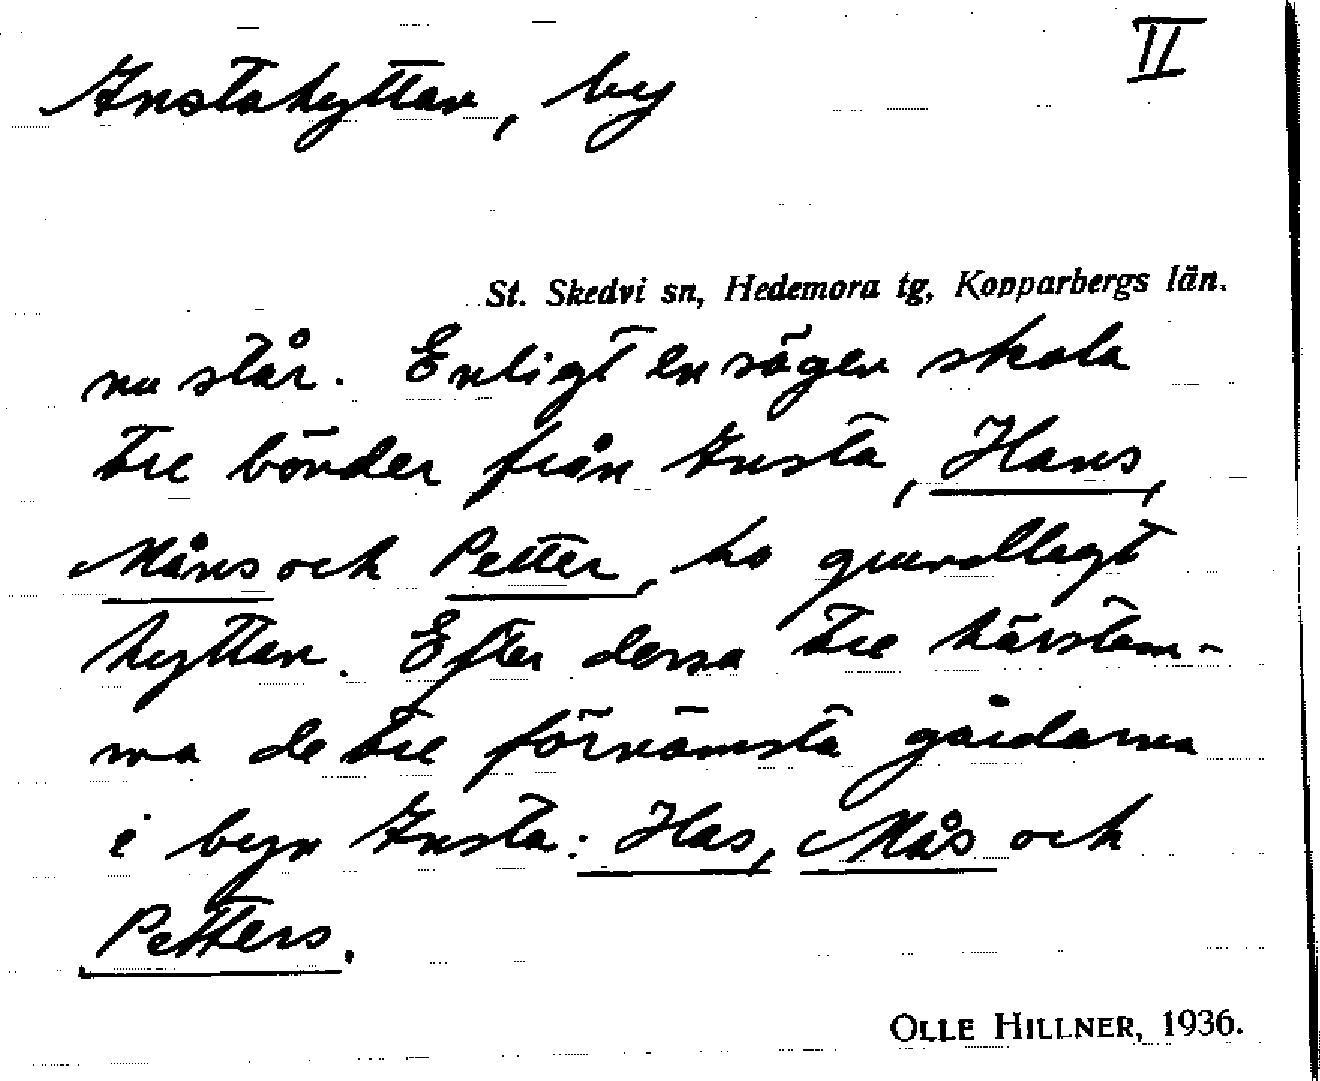 Instahyttan, by
II
St. Skedvi sn, Hedemora tg, Kopparbergs län.
nu står. Enligt en sägen skola
tre bönder från Insta, Hans,
Måns och Petter, ha grundlagt
hyttan. Efter dessa tre härstam-
ma de tre förnämsta gårdarna
i byn Insta: Has, Mås och
Petters.
OLLE HILLNER, 1936.